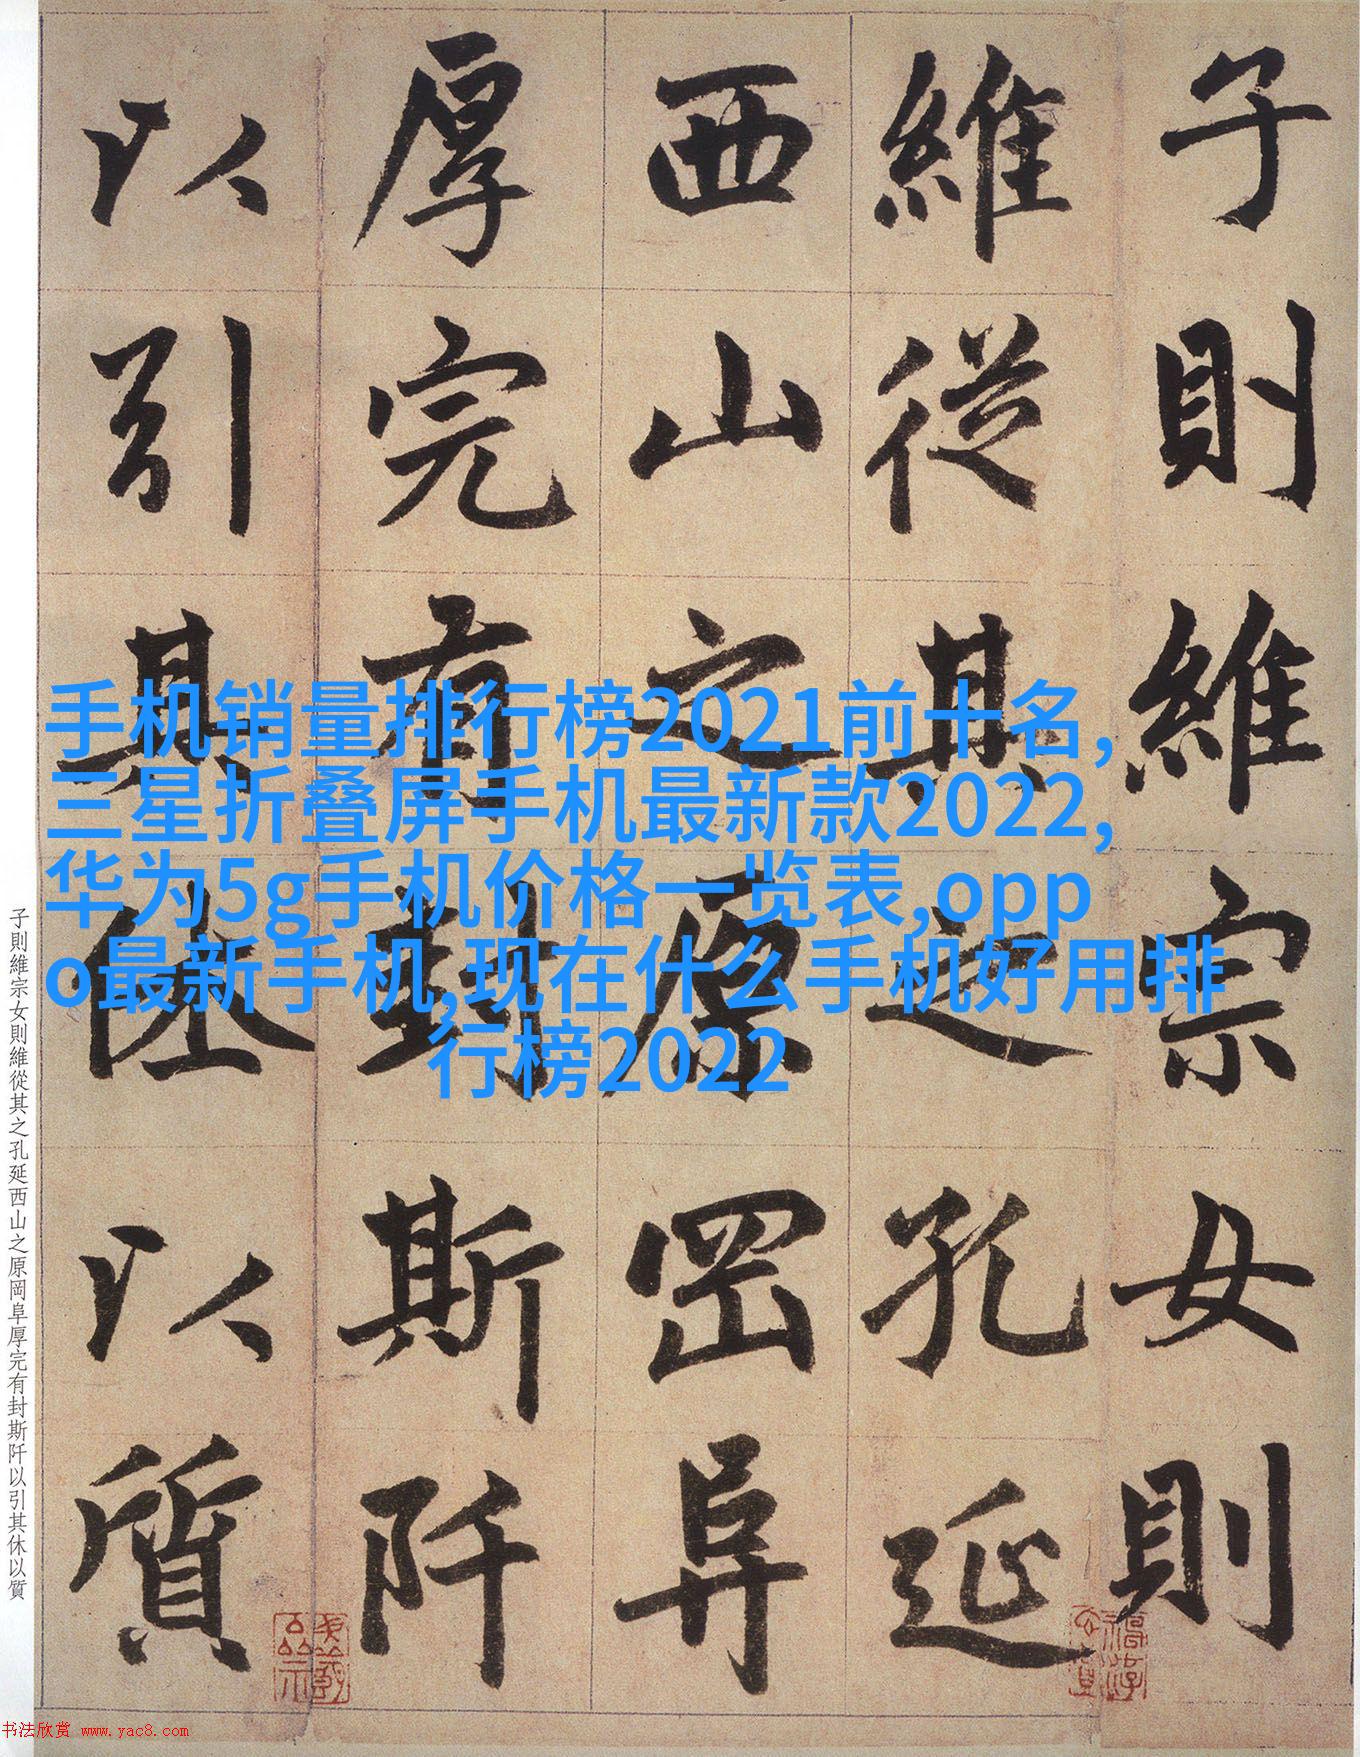 子則維宗女則
維從其之孔延
西山之原岡阜
厚完有封斯阡
以引其休以質
手机销量排行榜2021前十名,
三星折叠屏手机最新款2022,
华为5g手机价格一览表,opp
o最新手机,现在什么手机好用排
行榜2022
子則維宗女則維從其之孔延西山之原岡阜厚完有封斯阡以引其休以質
书法欣赏 www.yac8.com